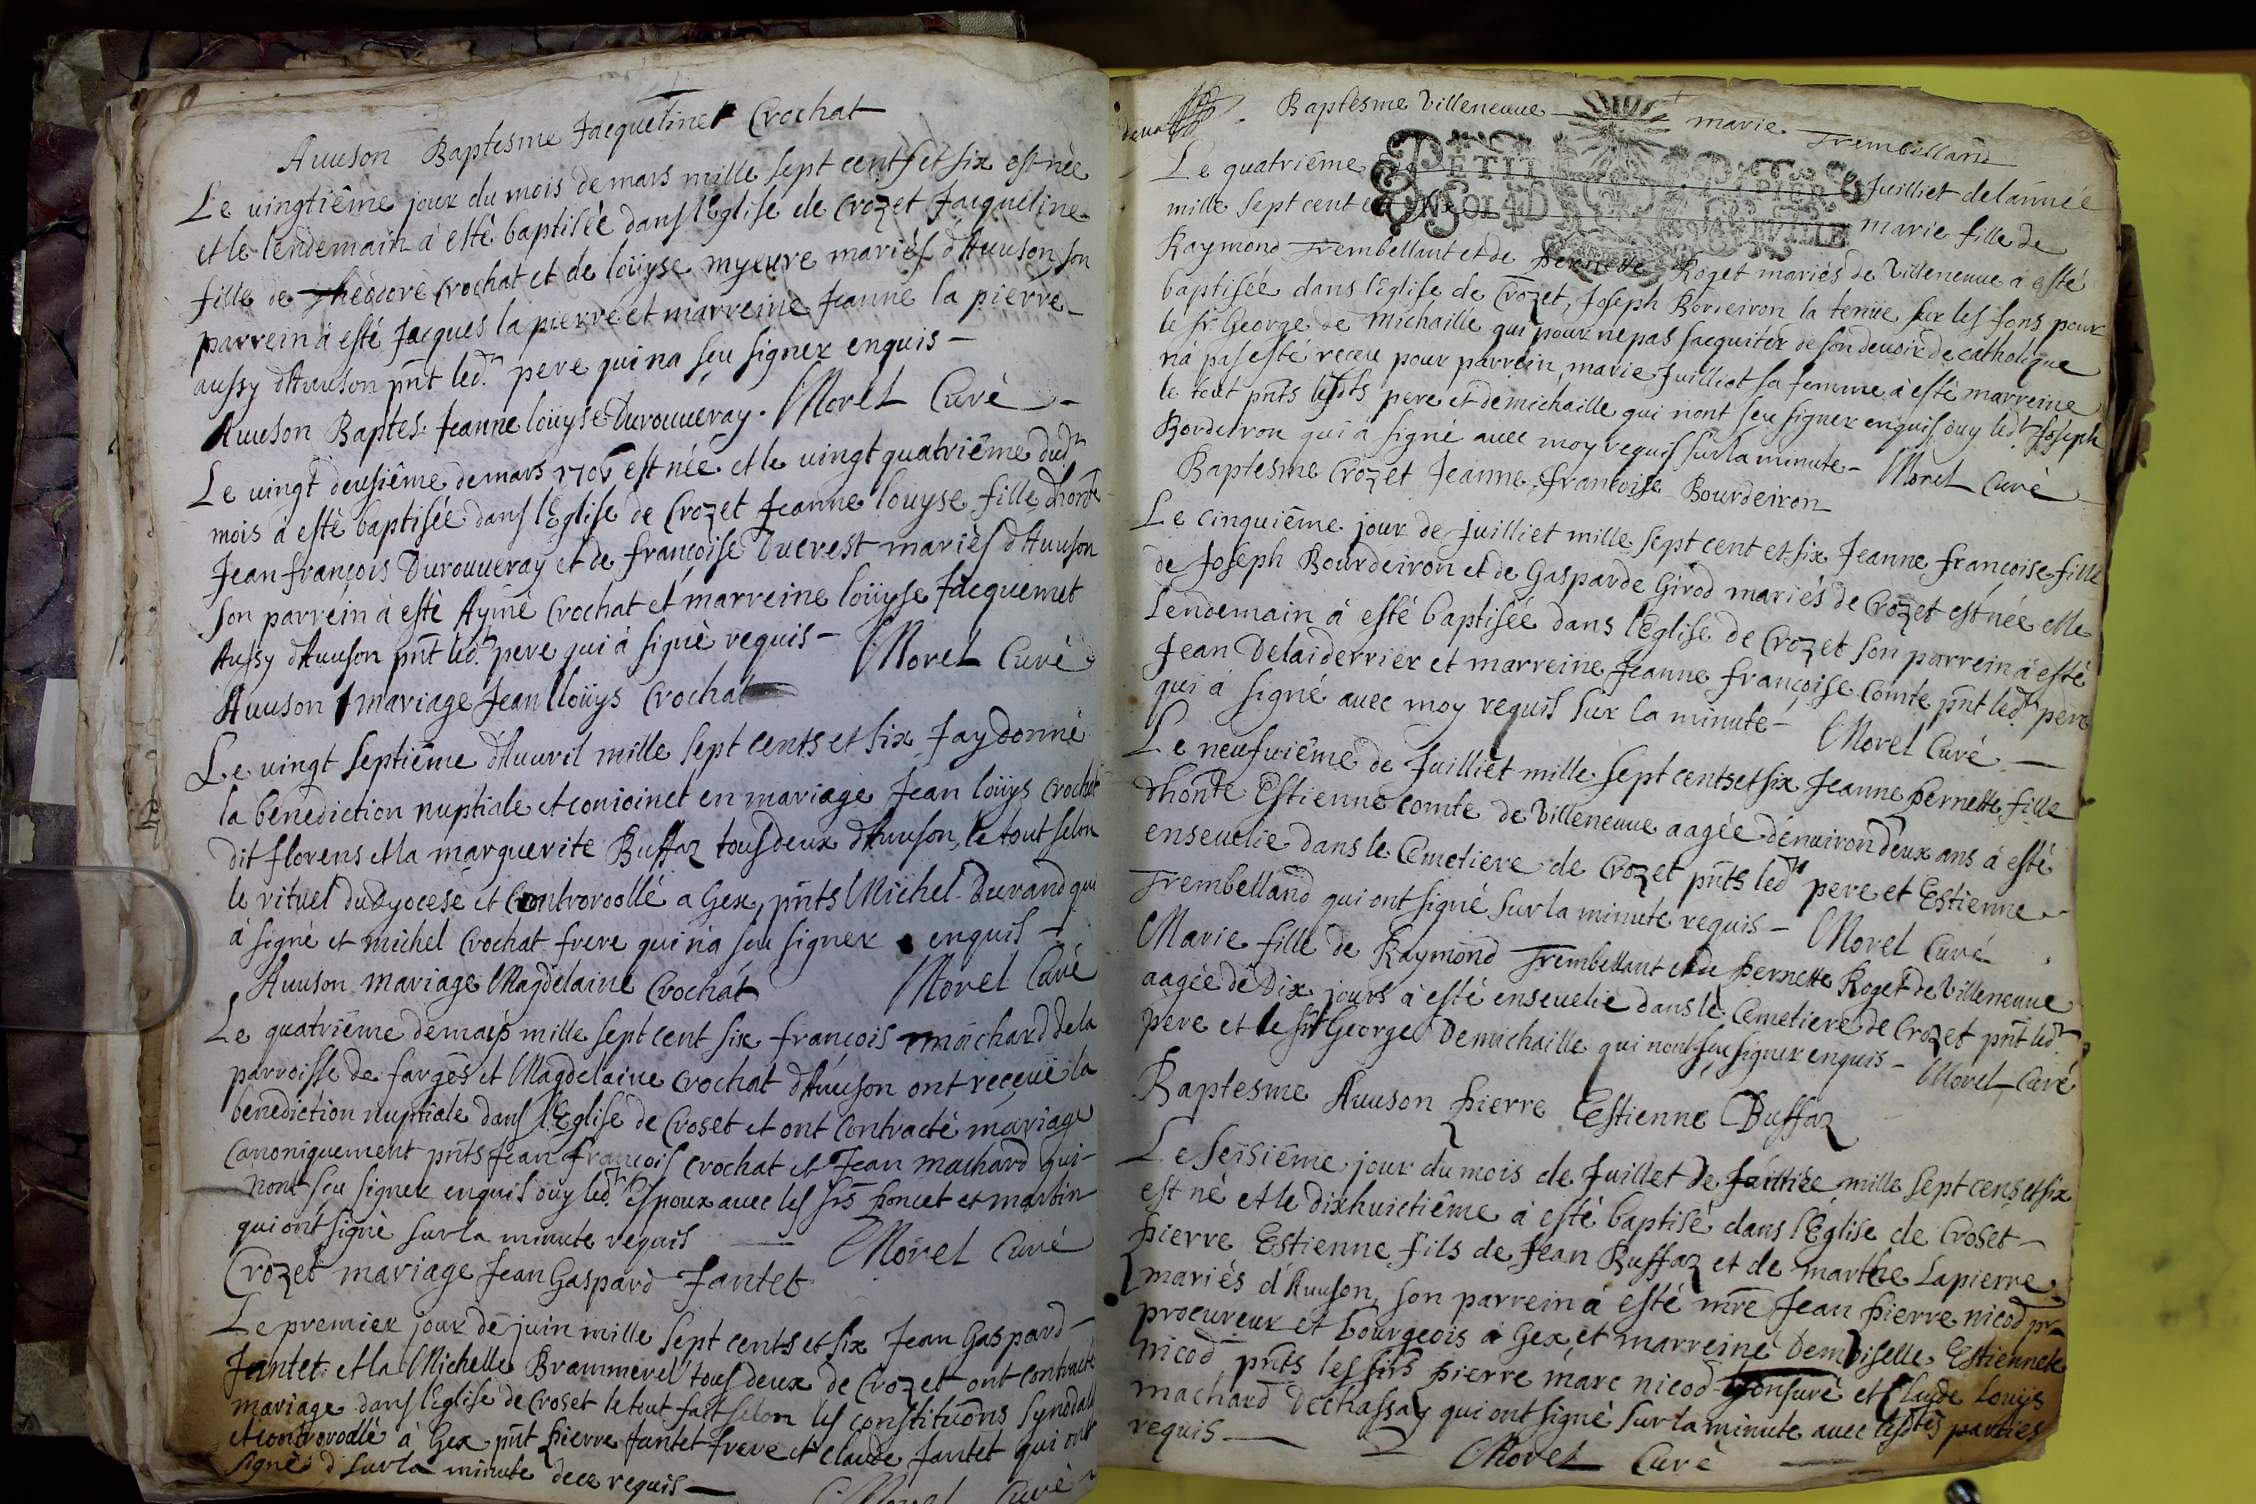 Auuson Baptesme Jacquetine Crochat
Le uingtiême jour du mois de mars mille sept cents et six est née
et le lendemain à esté baptisée dans l'Eglise de Crozet Jacqueline
fille de Theodore Crochat et de loüyse myeure mariés d'Auuson son
parrein à esté Jacques la pierre et marreine Jeanne la pierre
aussy d'Auuson pnt led.t pere qui na sçu signer enquis –
Morel Curé
Auuson Baptes. Jeanne loüyse Durouueray.
Le uingt deusiême de mars 1706 est née et le uingt quatriême dud.t
mois à esté baptisée dans l'Eglise de Crozet Jeanne louyse fille d'honte
Jean françois Durouueray et de françoise Ducrest mariés d'Auuson
son parrein à esté Aymé Crochat et marreine loüyse Jacquemet
Aussy d'Auuson pnt led.t pere qui à signé requis – Morel Curé
Auuson mariage Jean loüys Crochat
Le uingt septiême d'Auuril mille sept cents et six Jay donné
la benediction nuptiale et conioinct en mariage Jean loüys Crochat
dit florens et la marguerite Buffaz tous deux d'Auuson, le tout selon
le rituel du dyocese et Controroollé a Gex, pnts Michel Durand qui
à signé et michel Crochat frere qui n'a sçu signer enquis –
Morel Curé
Auuson mariage Magdelaine Crochat
Le quatriême de mars mille sept cent six françois machard de la
parroisse de farges et Magdelaine Crochat d'Auuson ont reçeüe la
benediction nuptiale dans l'Eglise de Croset et ont Contracté mariage
Canoniquement pnts Jean françois Crochat et Jean machard qui
n'ont sçu signer enquis ouy led.t Espoux auec les srs poncet et martin
qui ont signé sur la minute requis — Morel Curé
Crozet mariage Jean Gaspard Jantet
Le premier jour de juin mille sept cents et six Jean Gaspard
Jantet et la Michelle Brammerel tous deux de Crozet ont contracté
mariage dans l'Eglise de Croset le tout fait selon les constitutions synodales
et controroollé à Gex pnt pierre Jantet frere et Claude Jantet qui ont
signé sur la minute requis –
Morel Curé
Baptesme Villeneuue marie Trembelland
Le quatriême Juilliet de l'année
PETIT PAPIER
mille sept cent et marie fille de
Raymond Trembellant et de pernette Roget mariés de Villeneuue à esté
baptisée dans l'Eglise de Crozet, Joseph Bordeiron la tenüe sur les fons pour
le sr George de Michaille qui pour ne pas s'acquiter de son deuoir de catholique
n'a pas esté receu pour parrein, marie Juilliet sa femme à esté marreine
le tout pnts lesdts pere et demichaille qui n'ont sçu signer enquis, ouy led.t Joseph
Bordeiron qui à signé auec moy requis sur la minute – Morel Curé
Baptesme Crozet Jeanne françoise Bourdeiron
Le cinquiême jour de Juilliet mille sept cent et six Jeanne françoise fille
de Joseph Bourdeiron et de Gasparde Girod mariés de Crozet est née et le
lendemain à esté baptisée dans l'Eglise de Crozet son parrein à esté
Jean Delaiderrier et marreine Jeanne françoise Comte pnt led.t pere
qui à signé auec moy requis sur la minute – Morel Curé —
Le neufuiême de Juilliet mille sept cents et six Jeanne pernette fille
d'honte Estienne comte de Villeneuue aagée d'enuiron deux ans à esté
enseuelie dans le Cemetiere de Crozet pnts led.t pere et Estienne
Trembelland qui ont signé sur la minute requis – Morel Curé
Marie fille de Raymond Trembellant et de pernette Roget de Villeneuue
aagée de Dix jours à esté enseuelie dans le Cemetiere de Crozet pnt led.t
pere et le sr George Demichaille qui n'ont sçu signer enquis – Morel Curé
Baptesme Auuson pierre Estienne Buffaz
Le seisiême jour du mois de Juillet de mille sept cens et six
est né et le dixhuictiême à esté baptisé dans l'Eglise de Croset
pierre Estienne fils de Jean Buffaz et de marthe Lapierre
mariés d'Auuson, son parrein à esté mre Jean pierre nicod pr
procureur et bourgeois a Gex, et marreine Demoiselle Estiennete
nicod pnts les srs pierre marc nicod Tonsuré et Claude Louys
machard Dechassay qui ont signé sur la minute auec lesdtes parties
requis —
Morel Curé